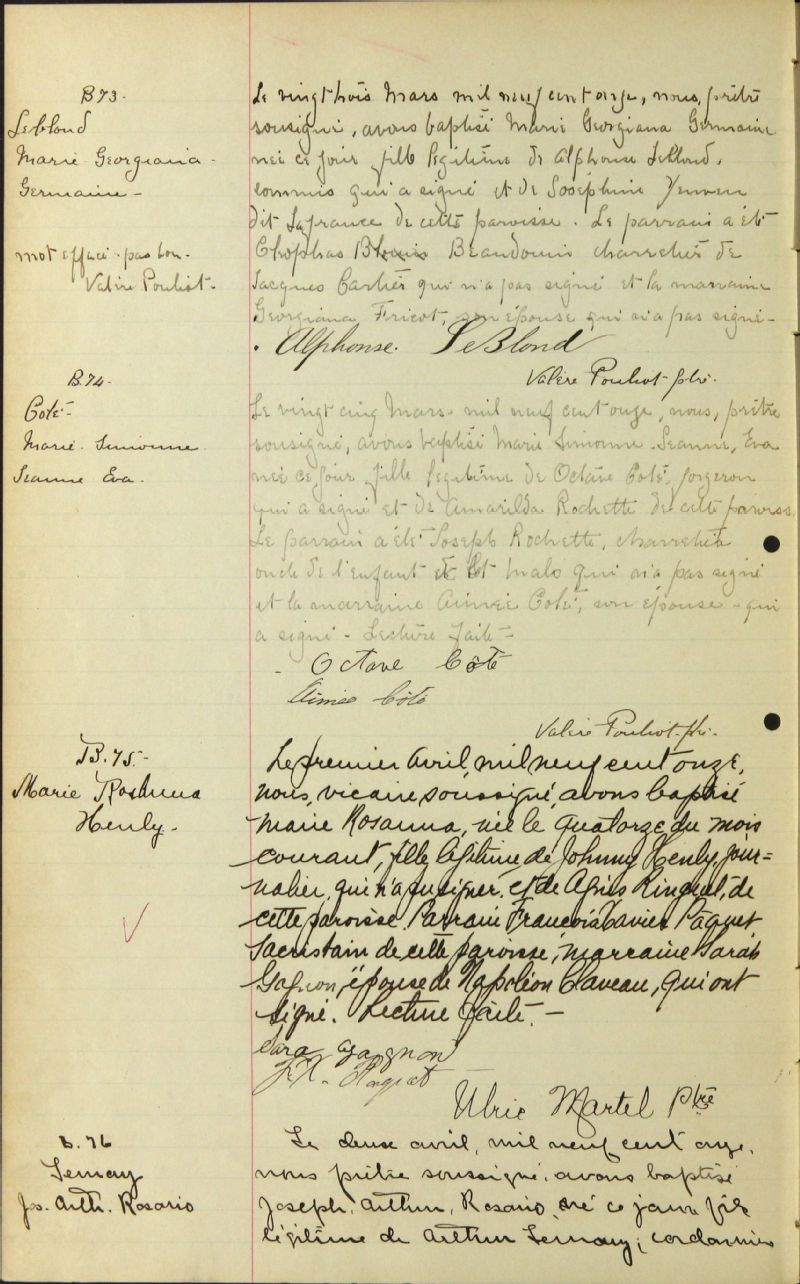 B73-
Leblond
Marie Georgiana -
Germaine -
mot effacé pas bon -
Valère Pouliot -
Le vingt trois Mars mil neuf cent onze, nous, prêtre
sousigné, avons baptisé Marie Georgiana Germaine
née ce jour fille légitime de Alphonse Leblond,
commis qui a signé et de Joséphine
dit Lafrance de cette paroisse. Le parrain a été
Beaudouin charretier de
Jacques Cartier qui n'a pas signé et la marraine
Georgiana son épouse qui n'a pas signé -
Alphonse LeBlond
Valère Pouliot ptre.
B.74
Coté -
Marie Simonne
Jeanne Eva.
Le vingt cinq Mars mil neuf cent onze, nous, prêtre
sousigné, avons baptisé Marie Simonne Jeanne, Eva
née ce jour fille légitime de Octave Coté, forgeron
qui a signé et de Amarilda Rochette de cette paroisse.
Le parrain a été Joseph Rochette, charretier
oncle de l'enfant de St Malo qui n'a pas signé
et la marraine Aimée Coté, son épouse - qui
a signé - Lecture faite -
Octave Côté
Aimée Côté
Valère Pouliot ptr.
B.75 -
Marie Rosanna
Henly -
Le premier Avril, mil neuf cent onze,
nous, vicaire soussigné, avons baptisé
Marie Rosanna, née le quatorze du mois
courant, fille légitime de Johnny Henly, jour=
nalier, qui n'a pu signer, et de Agnès de
cette paroisse. Parrain François Xavier Paquet
Sacristain de cette paroisse, marraine Sarah
Gagnon, épouse de Napoléon Claveau, qui ont
signé. Lecture faite. -
Sara Gagnon
F.X. Paquet
Ulric Martel Ptre
B.76
Lemay
Jos. Arth. Rosario
Le deux avril, mil neuf cent onze,
nous prêtre soussigné, avons baptisé
Joseph, Arthur, Rosario, né ce jour fils
légitime de Arthur Lemay, cordonnier